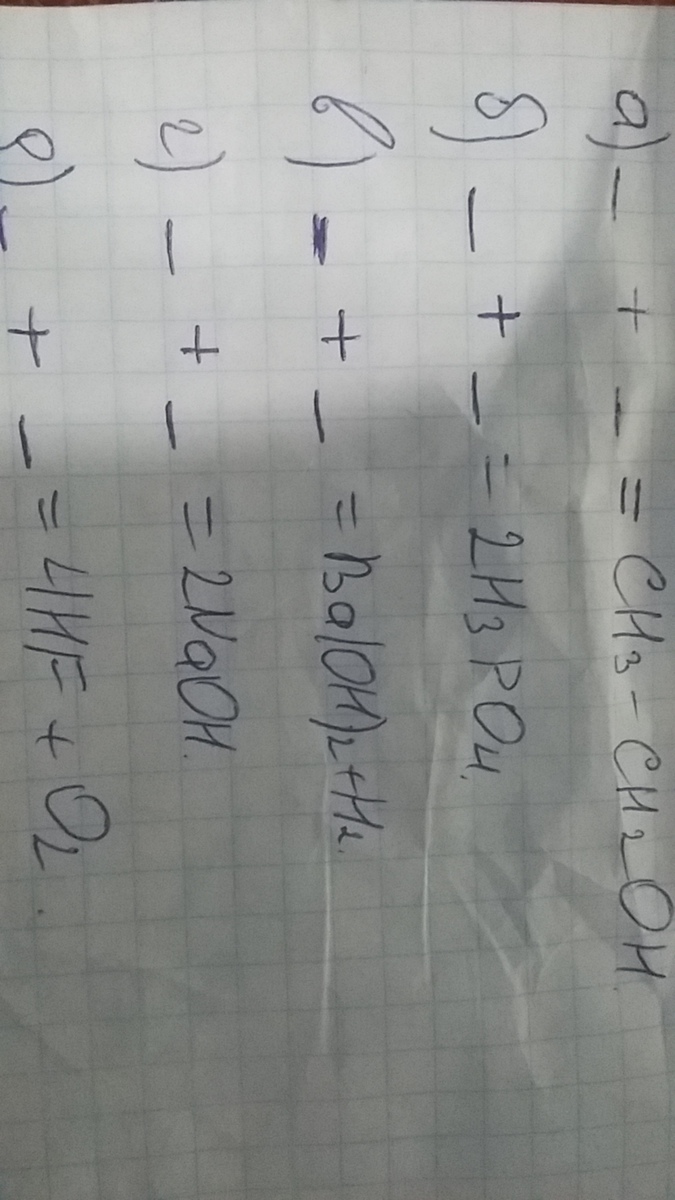 а) – + – = CH₃ – CH₂OH
б) – + – = 2H₃PO₄.
в) – + – = Ba(OH)₂ + H₂.
г) – + – = 2NaOH.
д) – + – = 4HF + O₂.